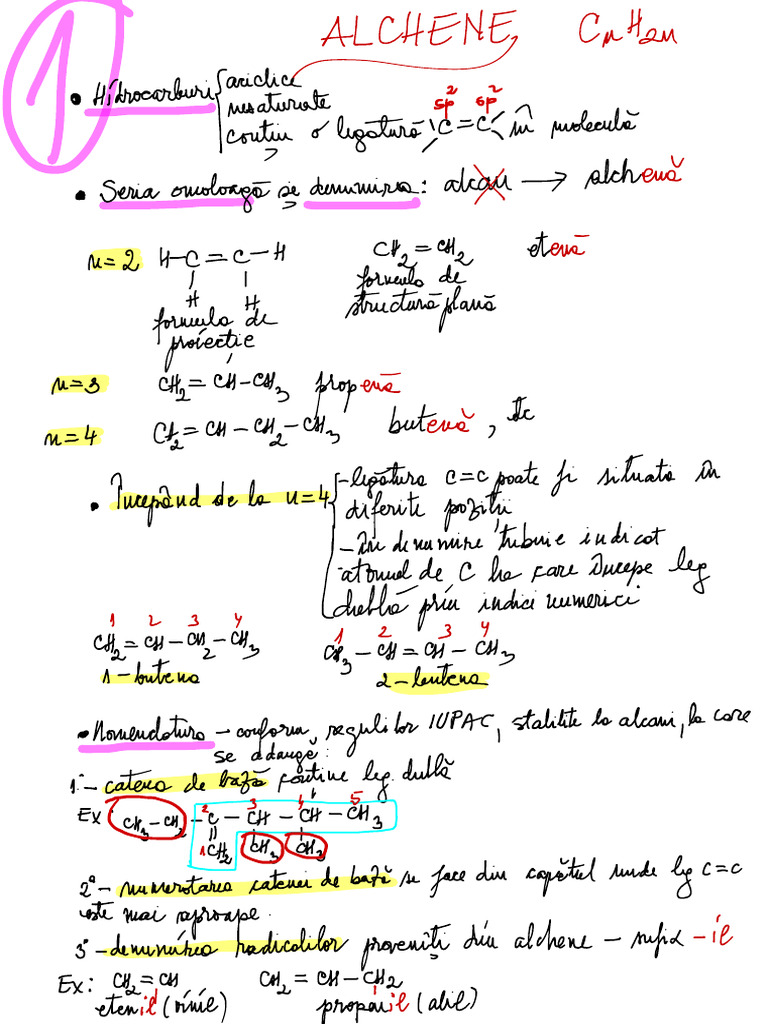 1
ALCHENE, CnH2n
• Hidrocarburi { aciclice
nesaturate
conțin o legătură C=C în moleculă
sp2 sp2
• Seria omoloagă și denumirea: alcan → alchenă
n=2 H-C=C-H CH2=CH2 etenă
H H
formula de proiecție
formula de structură plană
n=3 CH2=CH-CH3 propenă
n=4 CH2=CH-CH2-CH3 butenă, etc
• Începând de la n=4 { -legătura C=C poate fi situata în
diferite poziții
-în denumire trebuie indicat
atomul de C la care începe leg
dublă prin indici numerici
1 2 3 4
CH2=CH-CH2-CH3
1-butena
1 2 3 4
CH3-CH=CH-CH3
2-butena
• Nomenclatura - conform regulilor IUPAC, stabilite la alcani, la care
se adaugă:
1° - catena de bază conține leg. dublă
Ex CH3-CH2-C-CH-CH-CH3
2 3 4 5
1 CH2 CH3 CH3
2° - numerotarea catenei de bază se face din capătul unde lg C=C
este mai aproape.
3° - denumirea radicalilor proveniți din alchene - sufix -il
Ex: CH2=CH CH2=CH-CH2
etenil (vinil) propenil (alil)